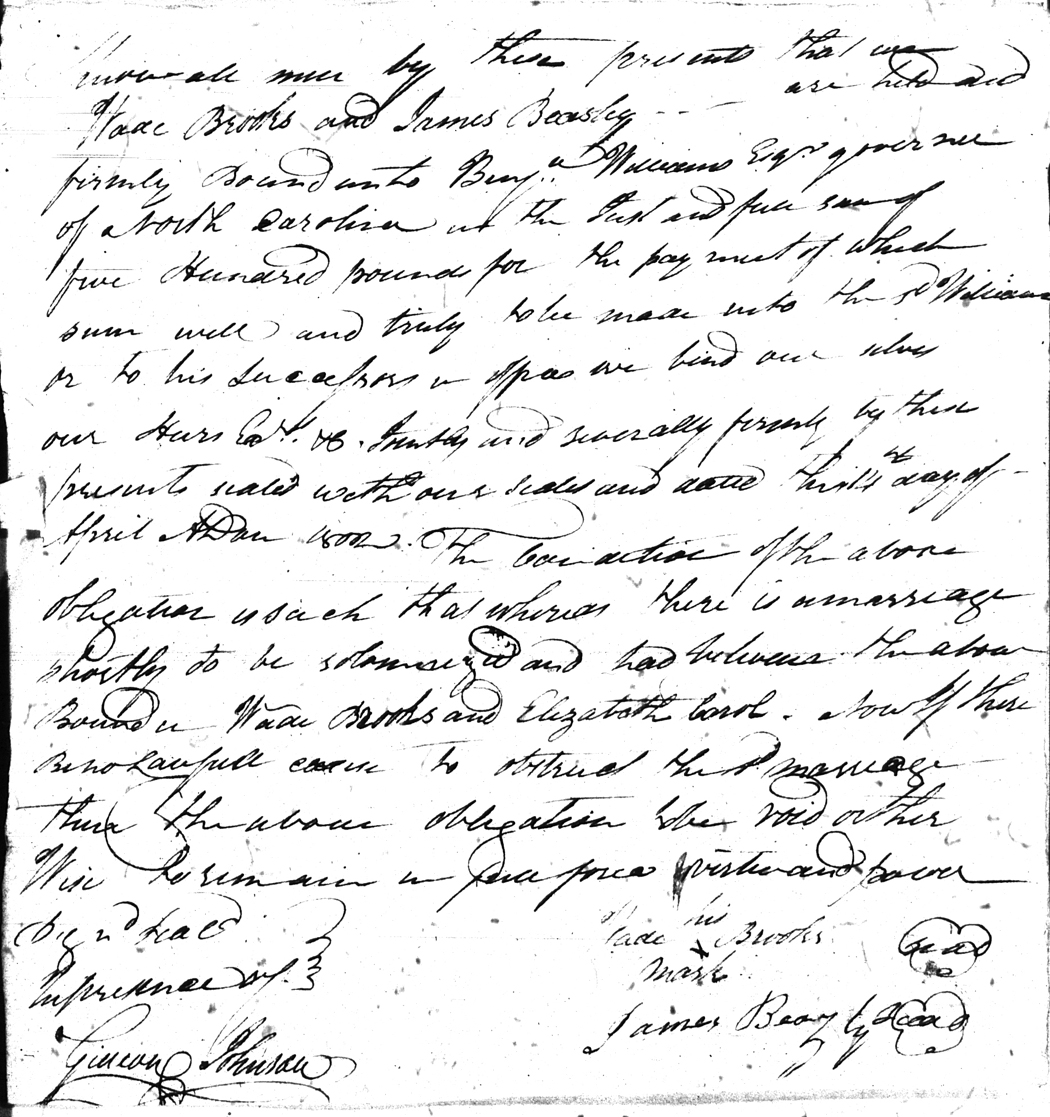 Know all men by these presents that we
Wade Brooks and James Beasley - - are held and
firmly Bound unto Benj.n Williams Esqr governer
of North Carolina in the Just and full sum of
five Hundred pounds for the payment of which
sum well and truly to be made unto the sd Williams
or to his Successors in office we bind our selves
our Heirs Exrs. &c. Jointly and severally firmly by these
presents sealed with our seales and dated this day of
April ADom 1802. The Condition of the above
obligation is such that whereas there is a marriage
shortly to be solomnized and had between the above
Bound n Wade Brooks and Elizabeth Carol. Now If there
Be no Lawfull cause to obstruct the sd marriage
then the above obligation to be void or other
Wise to remain in full force virtue and power
Signd seald
In presence of
Gideon Johnson
Wade his x mark Brooks seal
James Beazly Seal